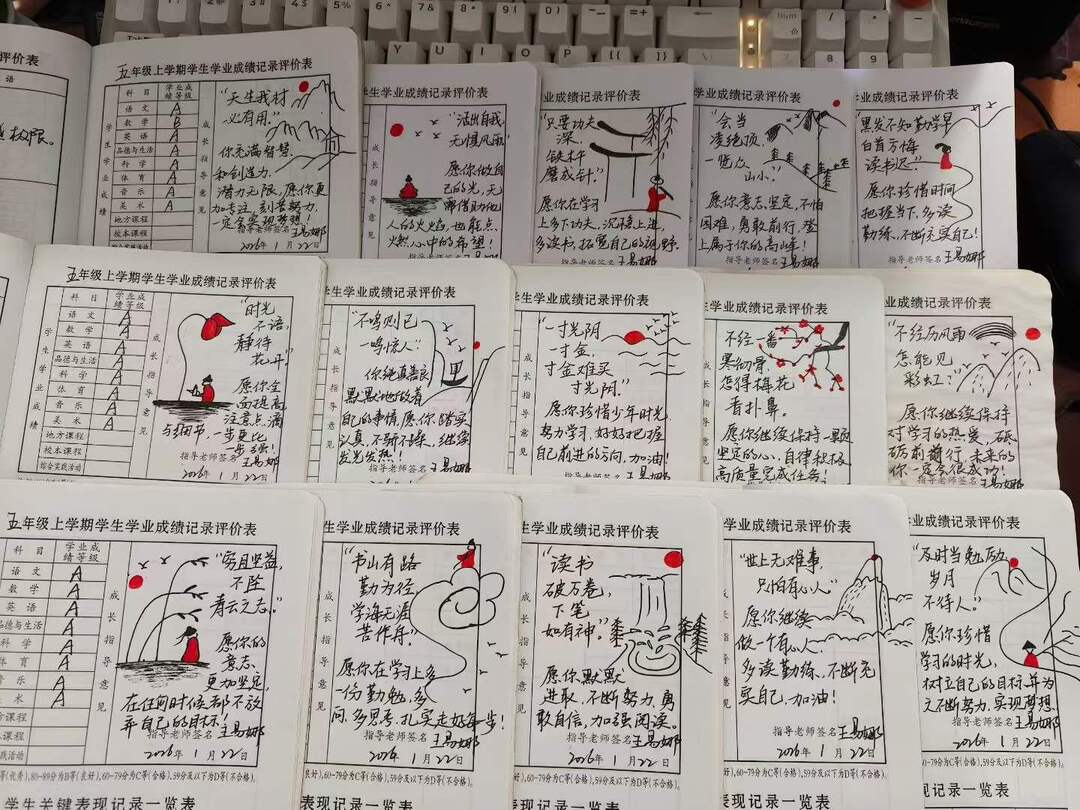 五年级上学期学生学业成绩记录评价表
科目 学业成绩等级
语文 A
数学 B
英语 A
品德与生活 A
科学 A
体育 A
音乐 A
美术 A
地方课程
校本课程
综合实践活动
学生学业成绩
成长指导意见
"天生我材
必有用。"
你充满智慧
和创造力,
潜力无限,愿你更
加专注,刻苦努力,
一定会实现梦想!
指导老师签名 王易娜
2026年1月22日
学业成绩记录评价表
"活出自我,
无惧风雨"
愿你做自
己的光,无
需借助他
人的火焰,也能点
燃心中的希望!
业成绩记录评价表
"只要功夫
深,
铁杵
磨成针。"
愿你在学习
上多下功夫,沉稳上进,
多读书,拓宽自己的视野.
指导老师签名 王易娜
学业成绩记录评价表
"会当
凌绝顶,
一览众
山小。"
愿你意志坚定,不怕
困难,勇敢前行,登
上属于你的高峰!
指导老师签名 王易娜
业成绩记录评价表
黑发不知勤学早
白首方悔
读书迟。"
愿你珍惜时间
把握当下,多读
勤练,不断充实自己!
指导老师签名 王易娜
五年级上学期学生学业成绩记录评价表
科目 学业成绩等级
语文 A
数学 A
英语 A
品德与生活 A
科学 A
体育 A
音乐 A
美术 A
地方课程
校本课程
综合实践活动
学生学业成绩
成长指导意见
"时光
不语,
静待
花开。"
愿你全
面提高
注意点滴
与细节,一步更比
一步强!
指导老师签名 王易娜
2026年1月22日
学生学业成绩记录评价表
成长指导意见
"不鸣则已
一鸣惊人。"
你纯真善良
默默地做着
自己的事情,愿你踏实
认真,不骄不躁,继续
发光发热!
指导老师签名 王易娜
2026年1月22日
学生学业成绩记录评价表
成长指导意见
"一寸光阴
一寸金,
寸金难买
寸光阴。"
愿你珍惜少年时光
努力学习,好好把握
自己前进的方向,加油!
指导老师签名 王易娜
学业成绩记录评价表
成长指导意见
不经一番
寒彻骨,
怎得梅花
香扑鼻。
愿你继续保持一颗
坚定的心,自律积极
高质量完成任务.
指导老师签名 王易娜
业成绩记录评价表
"不经历风雨
怎能见
彩虹?"
愿你继续保持
对学习的热爱,砥
砺前行,未来的
你一定会很成功!
指导老师签名 王易娜
五年级上学期学生学业成绩记录评价表
科目 学业成绩等级
语文 A
数学 A
英语 A
品德与生活 A
科学 A
体育 A
音乐 A
美术 A
地方课程
校本课程
综合实践活动
成长指导意见
"穷且益坚,
不坠
青云之志。"
愿你的
意志
更加坚定,
在任何时候都不放
弃自己的目标!
指导老师签名 王易娜
2026年1月22日
学生学业成绩记录评价表
成长指导意见
"书山有路
勤为径
学海无涯
苦作舟。"
愿你在学习上多
一份勤勉,多
问,多思考,扎实走好每一步!
指导老师签名 王易娜
2026年1月22日
生学业成绩记录评价表
成长指导意见
"读书
破万卷,
下笔
如有神。"
愿你默默
进取,不断努力,勇
敢自信,加强阅读。
指导老师签名 王易娜
2026年1月22日
学业成绩记录评价表
成长指导意见
"世上无难事,
只怕有心人。"
愿你继续
做一个有心人,
多读勤练,不断充
实自己,加油!
指导老师签名 王易娜
2026年1月22日
学业成绩记录评价表
"及时当勉励
岁月
不待人。"
愿你珍惜
学习的时光,
树立自己的目标,并为
之不断努力,实现梦想
指导老师签名 王易娜
2026年1月22日
学生关键表现记录一览表
表现记录一览表
表现记录一览表